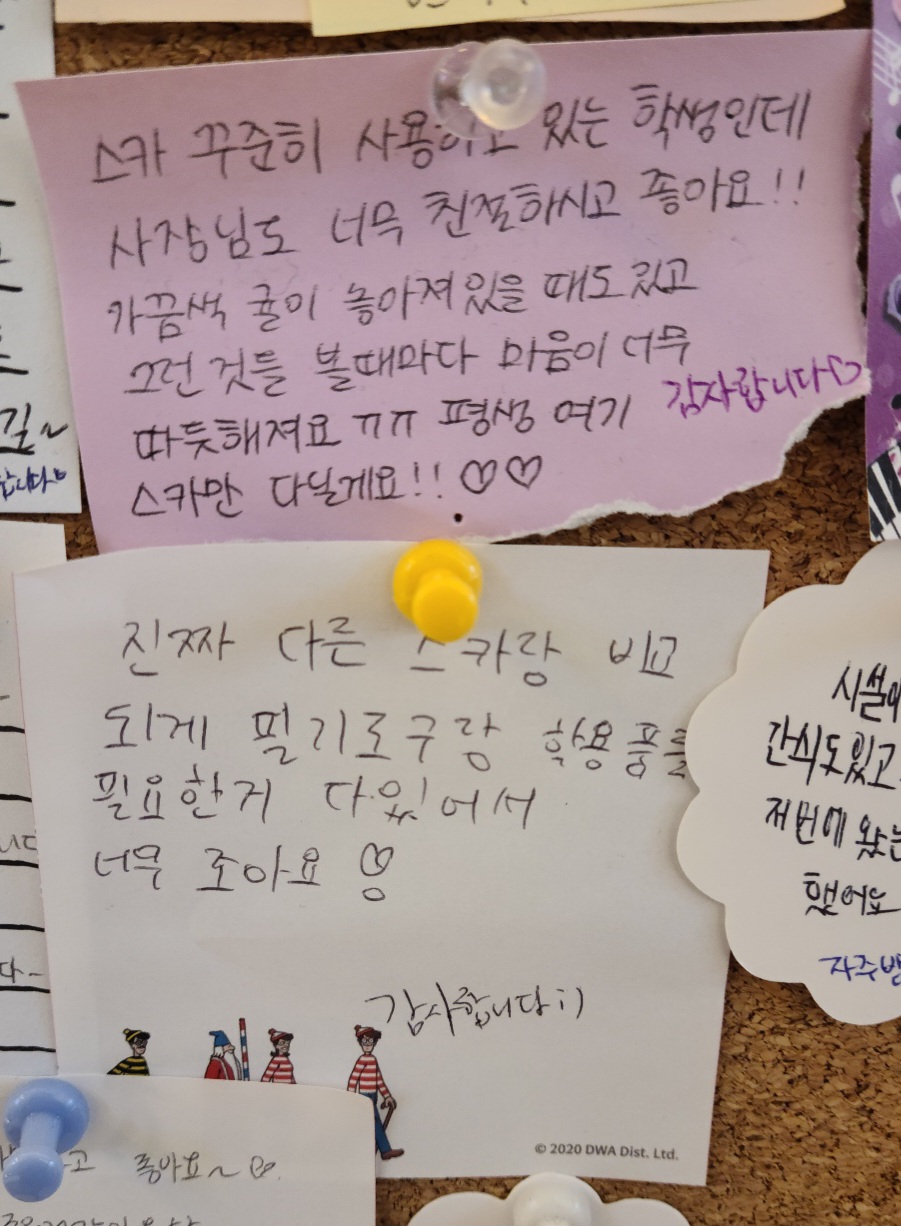 스카 꾸준히 사용하고 있는 학생인데
사장님도 너무 친절하시고 좋아요!!
가끔색 귤이 놓아져있을 때도 있고
그런 것들 볼때마다 마음이 너무
따듯해져요 ㅠㅠ 평생 여기
스카만 다닐게요!! ♡♡
감사합니다♡
진짜 다른 스카랑 비교
되게 필기로구랑 학용품들
필요한거 다있어서
너무 조아요
감사합니다 :)
© 2020 DWA Dist. Ltd.
시설에
간식도있고
저번에 왔는
했어요
자주
길~
좋아요~